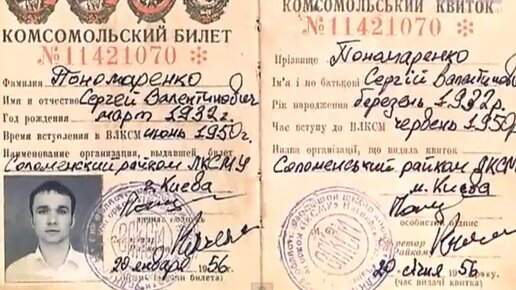 КОМСОМОЛЬСКИЙ БИЛЕТ
№ 11421070
Фамилия Пономаренко
Имя и отчество Сергей Валентинович
Год рождения март 1932г.
Время вступления в ВЛКСМ июнь 1950г.
Наименование организации, выдавшей билет
Соломенский райком ЛКСМУ
г. Киева
20 января 1956г.
КОМСОМОЛЬСЬКИЙ КВИТОК
№ 11421070
Прізвище Пономаренко
Ім'я і по батькові Сергій Валентинов
Рік народження березень 1932р.
Час вступу до ВЛКСМ червень 1950р.
Назва організації, що видала квиток
Соломенський райком ЛКСМ
м. Києва
особистий підпис
20 січня 1956 року.
(час видачі квитка)